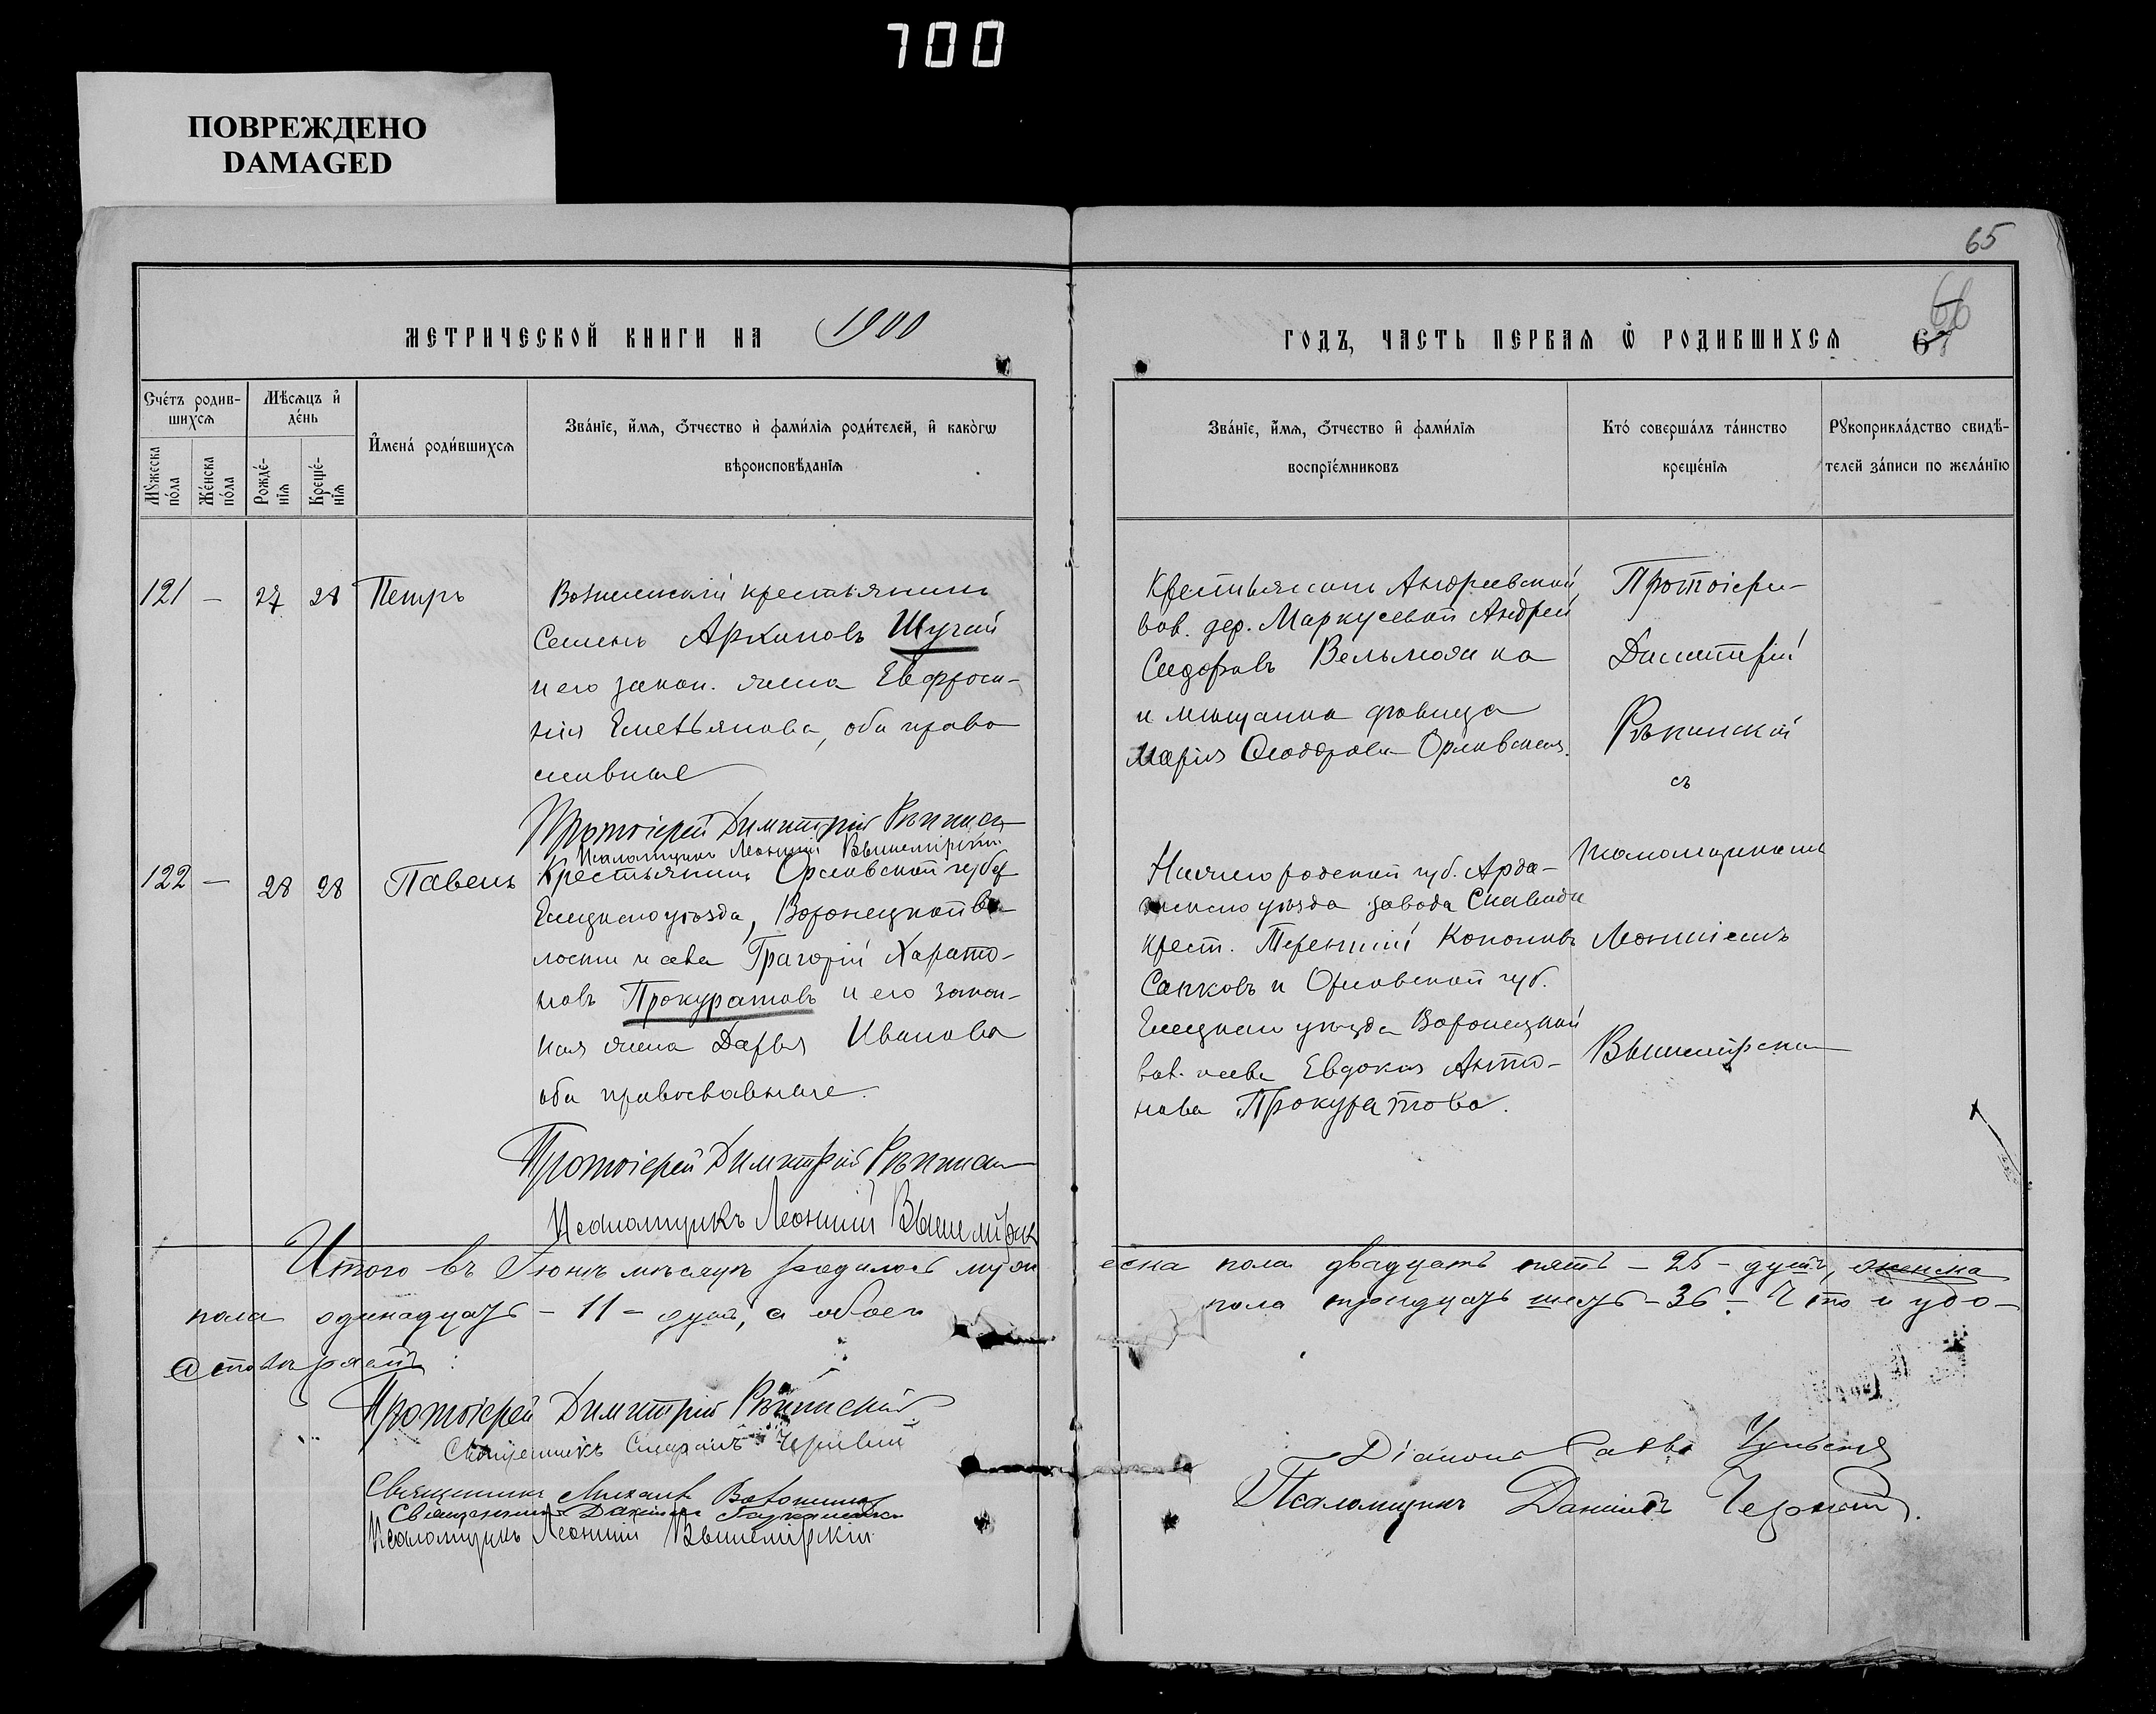 700
ПОВРЕЖДЕНО
DAMAGED
65
66
67
МЕТРИЧЕСКОЙ КНИГИ НА 1900
ГОДЪ, ЧАСТЬ ПЕРВАЯ Ѿ РОДИВШИХСЯ
Счéтъ родив-
шихсѧ
Мѣсѧцъ и҆
дéнь
Мꙋжеска
пóла
Жéнска
пóла
Рождé-
нїѧ
Крещé-
нїѧ
И҆мена́ роди́вшихсѧ
Зва́нїе, и҆́мѧ, ѻ҆́тчество и҆ фами́лїѧ роди́телей, и҆ како́гѡ
вѣроисповѣ́данїѧ
Зва́нїе, и҆́мѧ, ѻ҆́тчество и҆ фами́лїѧ
воспрїе́мниковъ
Кто́ соверша́лъ та́инство
креще́нїѧ
Рꙋкоприкла́дство свидѣ́-
телей за́писи по жела́нїю
121 — 27 28 Петръ
Вознесенскій крестьянинъ
Семенъ Архиповъ Шугай
и его закон. жена Евфроси-
нія Емельянова, оба право
славные
Протоіерей Димитрій Рѣпинск
Псаломщикъ Леонтій Вышемірскій
Крестьянинъ Андреевской
вол. дер. Маркусевой Андрей
Сидоровъ Вельможка
и мѣщанка дѣвица
Марія Ѳеодорова Орловская.
Протоіерей
Димитрій
Рѣпинскій
съ
псаломщикомъ
Леонтіемъ
Вышемірским
122 — 28 28 Павелъ
Крестьянинъ Орловской губер
Елецкаго уѣзда, Воронецкой во
лости и села Григорій Харито-
новъ Прокуратовъ и его закон-
ная жена Дарья Иванова
оба православные.
Протоіерей Димитрій Рѣпинск
Псаломщикъ Леонтій Вышемірск
Нижегородской губ. Арда-
товскаго уѣзда завода
крест. Терентій Кононовъ
Сапковъ и Орловской губ.
Елецкаго уѣзда Воронецкой
вол. села Евдокія Анто-
нова Прокуратова.
Итого въ Іюнѣ мѣсяцѣ родилось муж
еска пола двадцать пять — 25 — душъ, женска
пола одинадцать — 11 — душъ, а обоего
пола тридцать шесть — 36 — Что и удо-
стовѣряемъ:
Протоіерей Димитрій Рѣпинскій
Священникъ
Священникъ Михаилъ
Священникъ
Псаломщикъ Леонтій Вышемірскій
Діаконъ Савва
Псаломщикъ Даніилъ Черный.